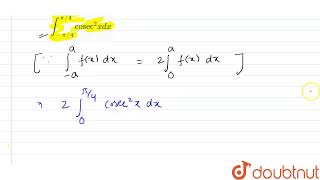 = ∫_{-π/4}^{π/4} cosec²xdx
[∵ ∫_{-a}^{a} f(x) dx = 2∫_{0}^{a} f(x) dx ]
⇒ 2 ∫_{0}^{π/4} cosec²x dx
doubtnut